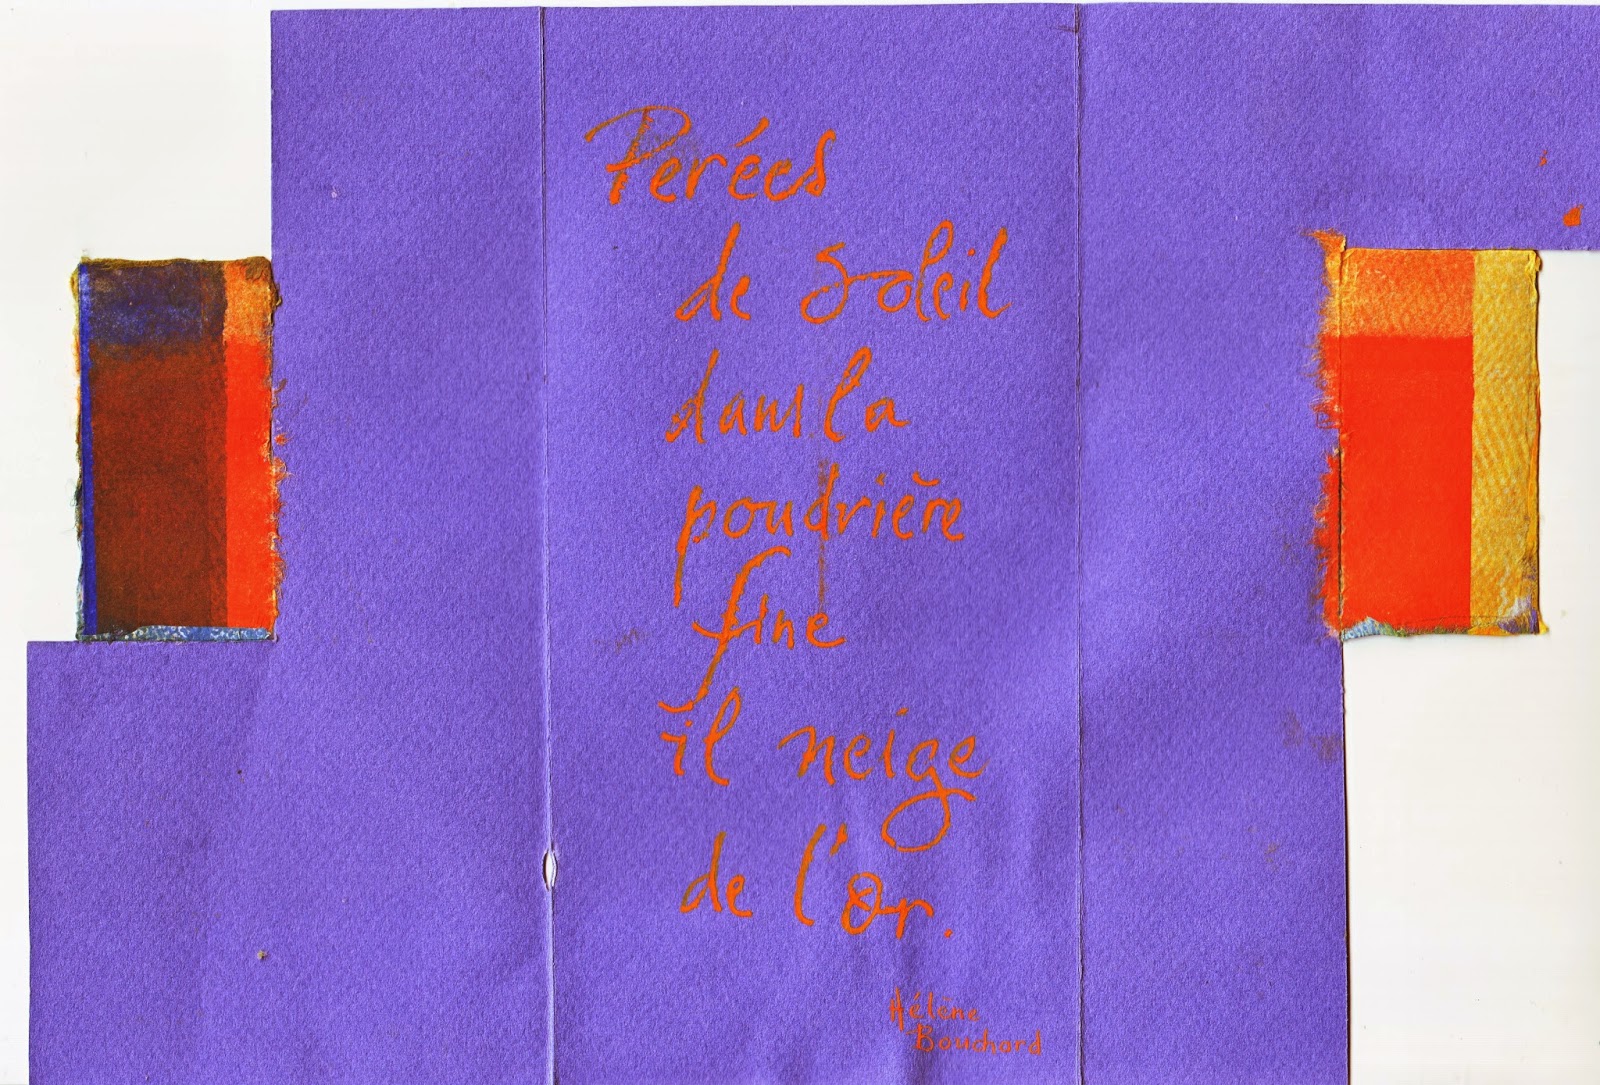 Perées
de soleil
dans la
poudrière
fine
il neige
de l'or.
Hélène
Bouchard